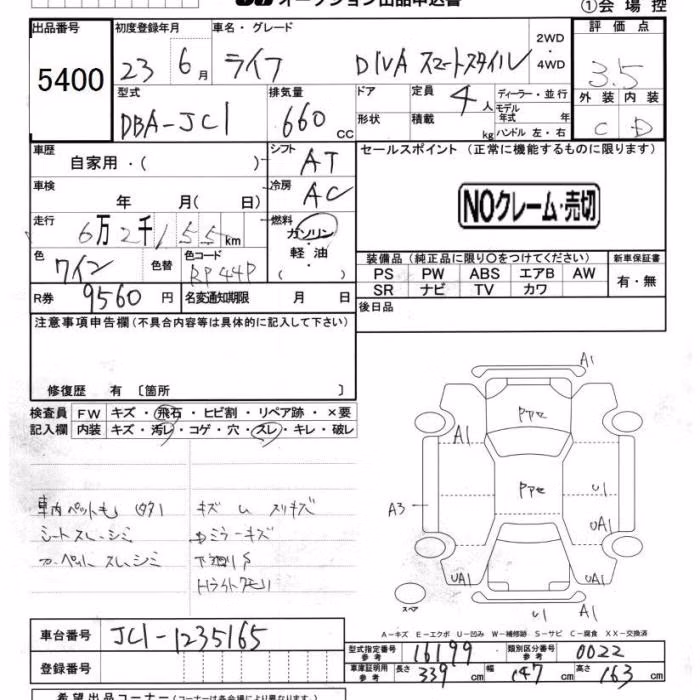 オークション出品申込書
①会場控
出品番号 初度登録年月 車名・グレード 2WD ・ 4WD 評価点
5400 23 6月 ライフ DIVA スマートスタイル 3.5
型式 排気量 ドア 定員 4人 ディーラー・並行 外装 内装
DBA-JC1 660 cc 形状 積載 kg モデル年式 年 ハンドル 左・右 C D
車歴 自家用・( ) シフト AT セールスポイント (正常に機能するものに限ります)
車検 年 月( 日) 冷房 AC NOクレーム・売切
走行 6万2千155km 燃料 ガソリン・軽油・( )
色 ワイン 色替 色コード RP44P 装備品(純正品に限り○をつけてください) 新車保証書
PS PW ABS エアB AW 有・無
SR ナビ TV カワ
R券 9560円 名変通知期限 月 日 後日品
注意事項申告欄(不具合内容等は具体的に記入して下さい)
修復歴 有〔箇所 〕
検査員 FW キズ・飛石・ヒビ割・リペア跡・×要
記入欄 内装 キズ・汚レ・コゲ・穴・スレ・キレ・破レ
車内ペット毛
シートスレ、シミ ミラーキズ
カーペットスレ、シミ 下廻りS
Hライトクモリ
A1
A1
A3
U1
UA1
UA1
UA1
U1 A1
スペア
A-キズ E-エクボ U-凹み W-補修跡 S-サビ C-腐食 XX-交換済
車台番号 JC1-1235165
登録番号
型式指定番号 参考 16199 類別区分番号 参考 0022
車庫証明用 参考 長さ 339cm 幅 147cm 高さ 163cm
希望出品コーナー(コーナーは各会場により異なります。)